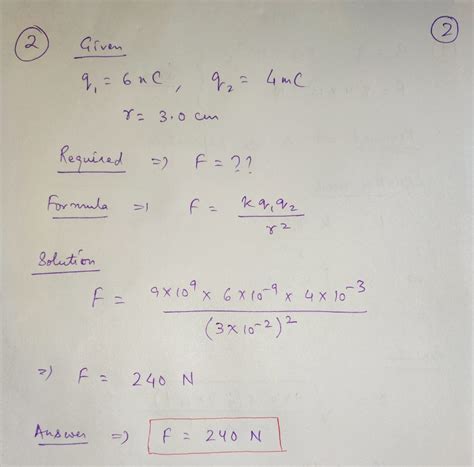 2 Given 2
q₁ = 6 nC, q₂ = 4 mC
r = 3.0 cm
Required => F = ??
Formula => F = kq₁q₂ / r²
Solution
F = 9×10⁹ × 6×10⁻⁹ × 4×10⁻³ / (3×10⁻²)²
=> F = 240 N
Answer => F = 240 N